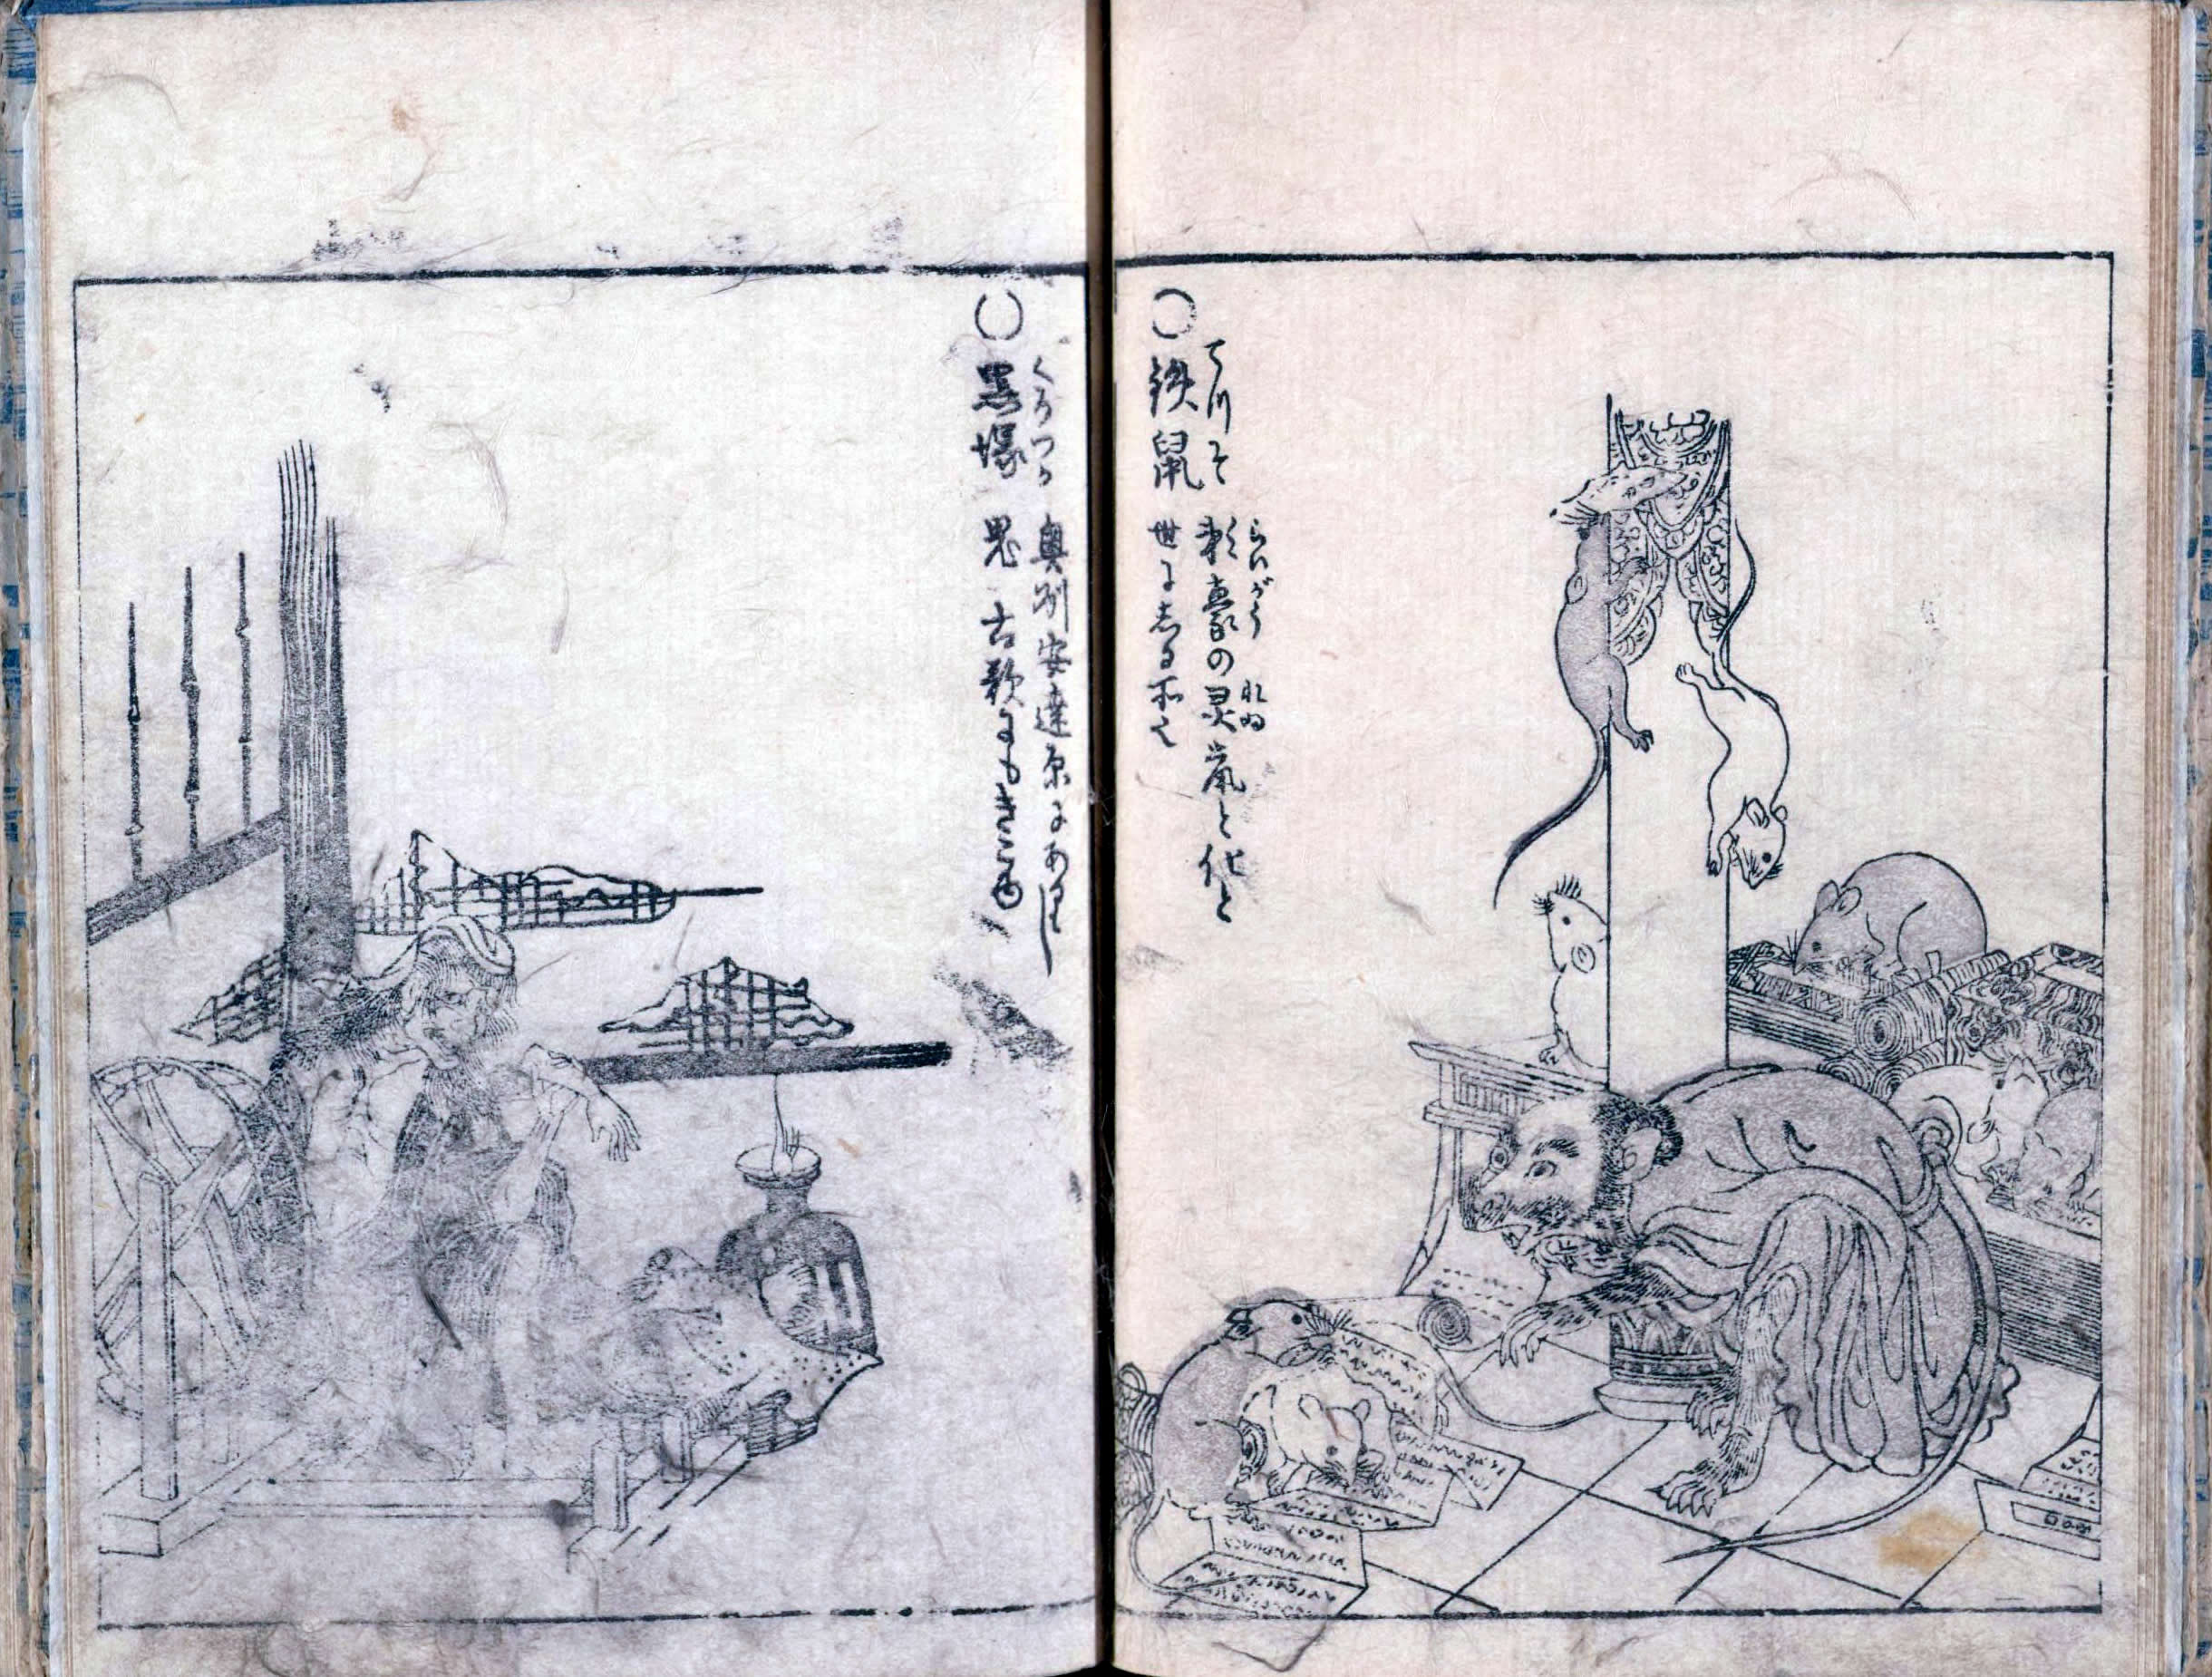 ○鉄鼠
てつそ
頼豪の灵鼠と化と
らいがう
れゐ
世にしる所也
○黒塚
くろつか
奥州安達原にありし
鬼 古歌にもきこゆ